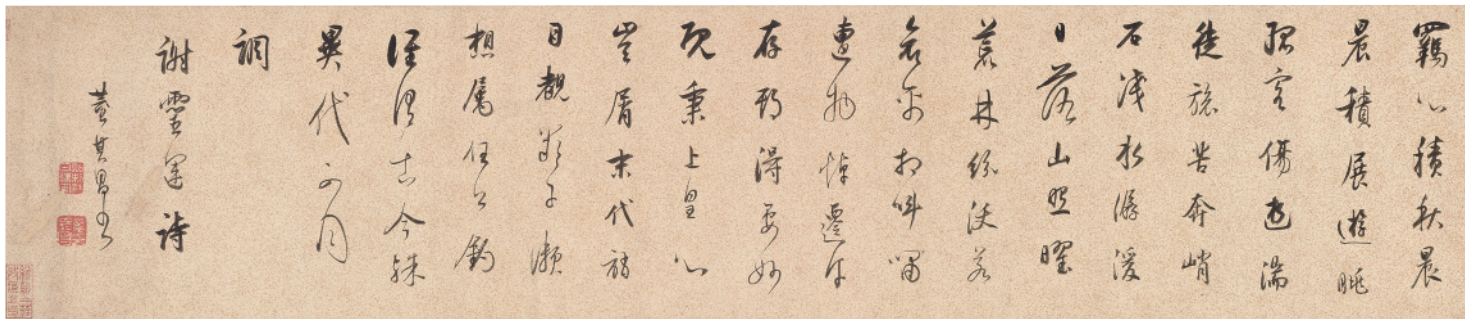 羈心積秋晨
晨積展遊眺
孤客傷逝湍
徒旅苦奔峭
石淺水潺湲
日落山照曜
荒林紛沃若
哀禽相叫嘯
遭物悼遷斥
存期得要妙
既秉上皇心
豈屑末代誚
目覩嚴子瀨
想屬任公釣
誰謂古今殊
異代可同
調
謝靈運詩
董其昌書